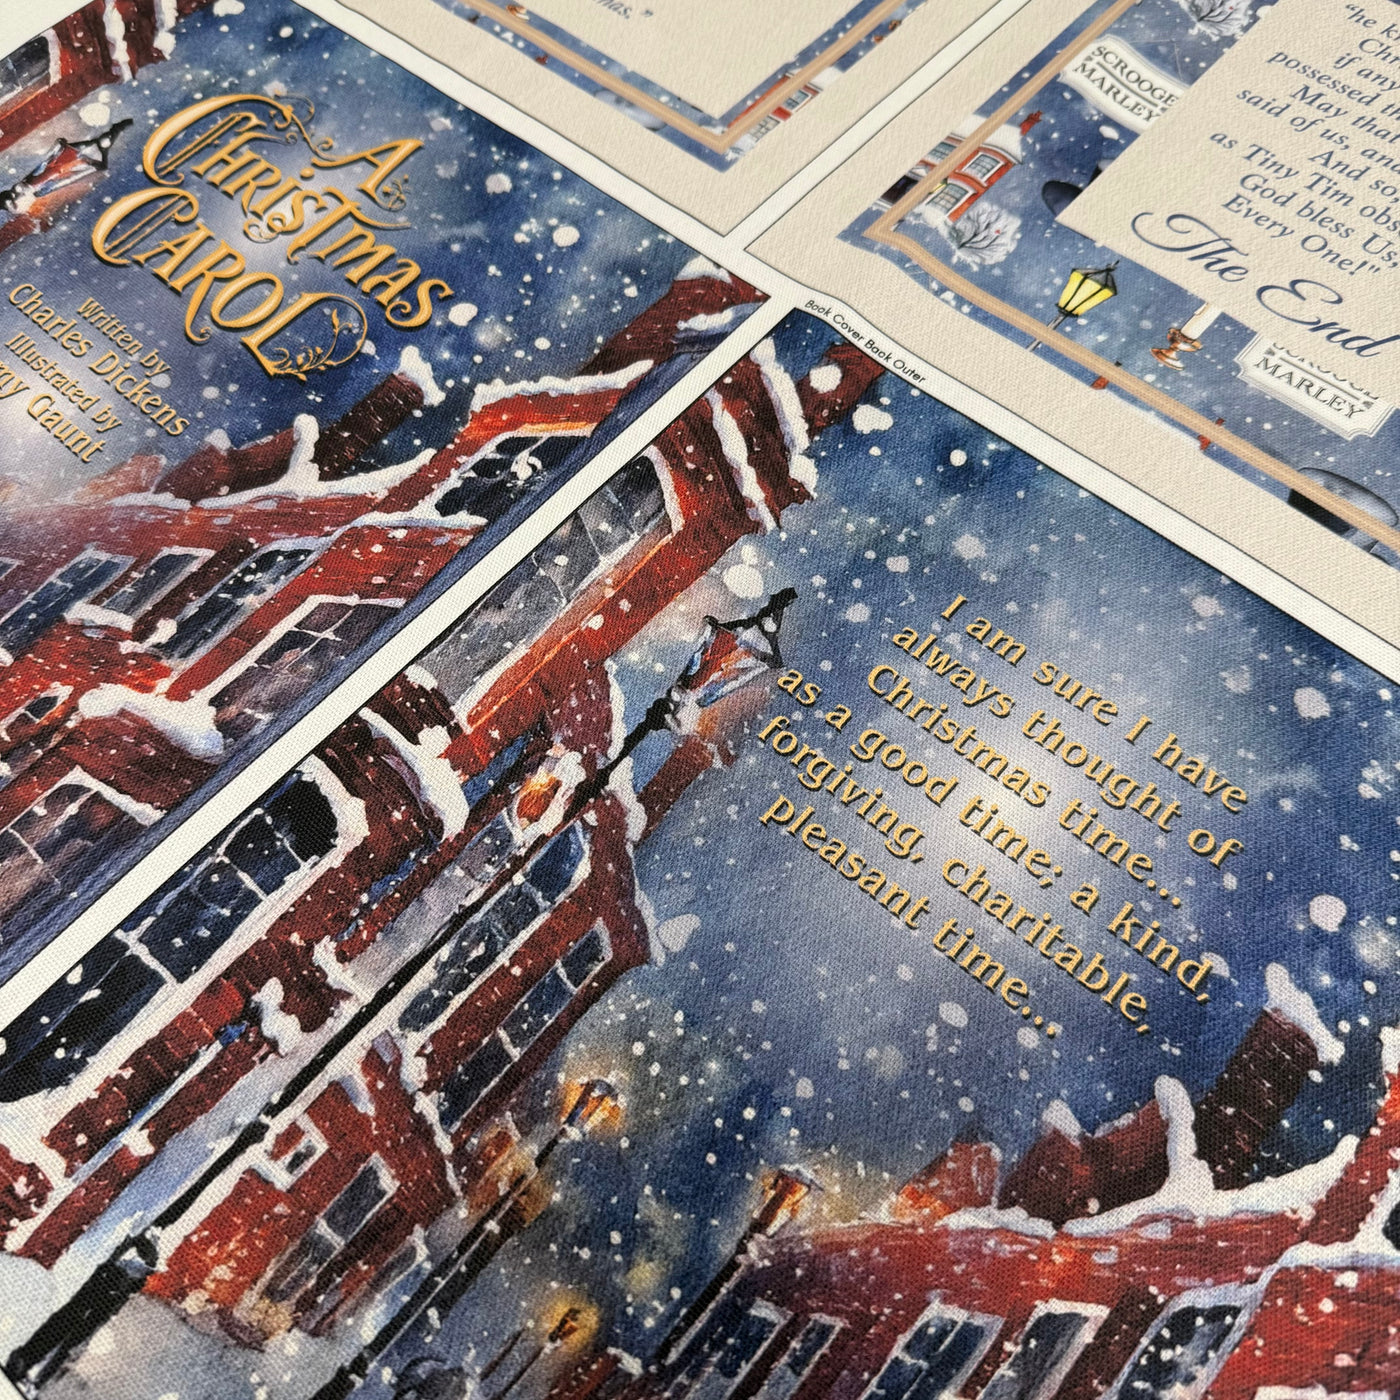 A
CHRISTMAS
CAROL
Written by
Charles Dickens
Illustrated by
Gaunt
SCROOGE
MARLEY
possessed
May tha
said of us, and
And so
as Tiny Tim
God bless Us,
Every One!"
The End
MARLEY
Book Cover Back Outer
I am sure I have
always thought of
Christmas time...
as a good time; a kind,
forgiving, charitable,
pleasant time...